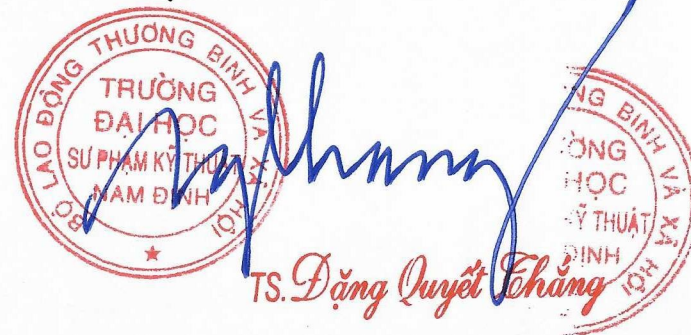 BỘ LAO ĐỘNG THƯƠNG BINH VÀ XÃ HỘI
TRƯỜNG
ĐẠI HỌC
SƯ PHẠM KỸ THUẬT
NAM ĐỊNH
NG BINH VÀ XÃ HỘI
ỜNG
HỌC
KỸ THUẬT
ĐỊNH
TS. Đặng Quyết Thắng